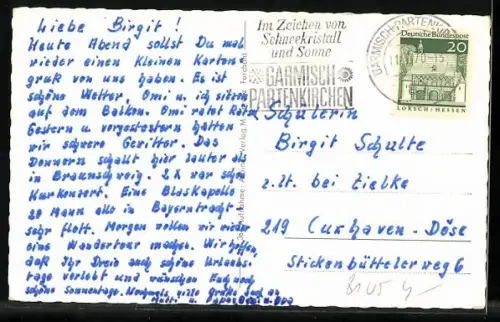 Liebe Birgit!
Heute Abend sollst Du mal
wieder einen kleinen Karten=
gruß von uns haben. Es ist
schönes Wetter, Omi u. ich sitzen
auf dem Balkon. Omi ratet Rätsel
Gestern u. vorgestern hatten
wir schwere Gewitter. Das
Donnern schallt hier lauter als
in Braunschweig. 2 x war schon
Kurkonzert. Eine Blaskapelle
20 Mann alle in Bayerntracht
sehr flott. Morgen wollen wir wieder
eine Wandertour machen. Wir hoffen,
daß Ihr Drei auch schöne Urlaubs-
tage verlebt und wünschen Euch noch
schöne Sonnentage. Nochmals viele Grüße auch an
Mutti u. Papa Omi u. Opa
Im Zeichen von
Schneekristall
und Sonne
GARMISCH
PARTENKIRCHEN
GARMISCH-PARTENKIRCHEN
Deutsche Bundespost
20
LORSCH/HESSEN
Schülerin
Birgit Schulte
z.Zt. bei Zielke
219 Cuxhaven-Döse
Stickenbüttelerweg 6